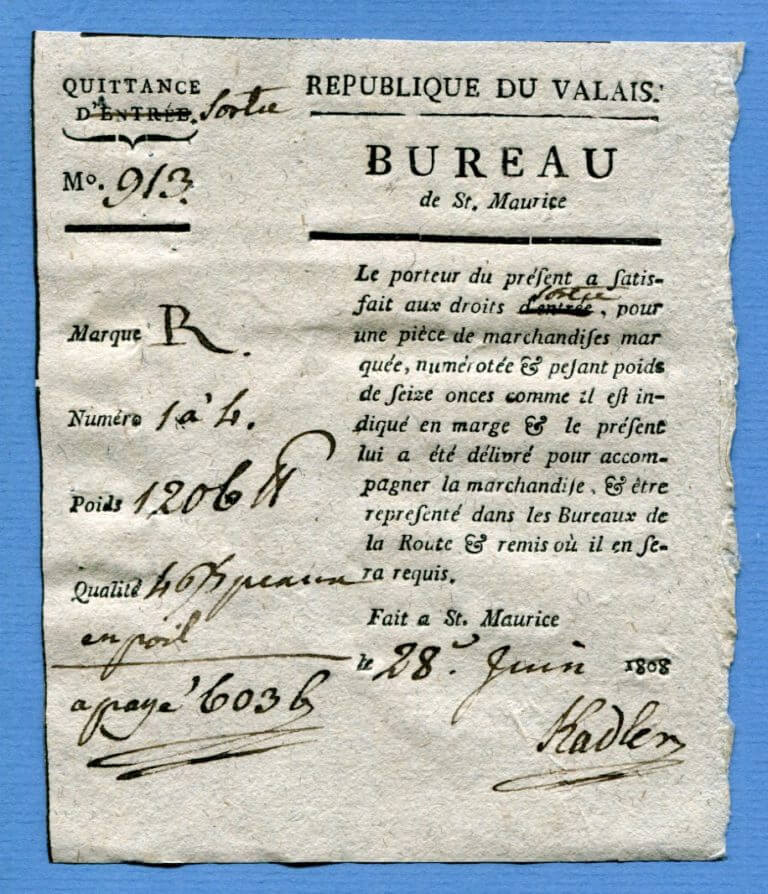 QUITTANCE
D'ENTRÉE. Sortie
Mo. 913
REPUBLIQUE DU VALAIS.
BUREAU
de St. Maurice
Marque R.
Numéro 1 à 4.
Poids 1206 ℔
Qualité 4 peaux
en poil
a payé 6036
Le porteur du préſent a ſatis-
fait aux droits d'entrée, sortie pour
une pièce de marchandiſes mar
quée, numérotée & peſant poids
de ſeize onces comme il eſt in-
diqué en marge & le préſent
lui a été délivré pour accom-
pagner la marchandiſe, & être
repreſenté dans les Bureaux de
la Route & remis où il en ſe-
ra requis.
Fait a St. Maurice
le 28. Juin 1808
Kadler